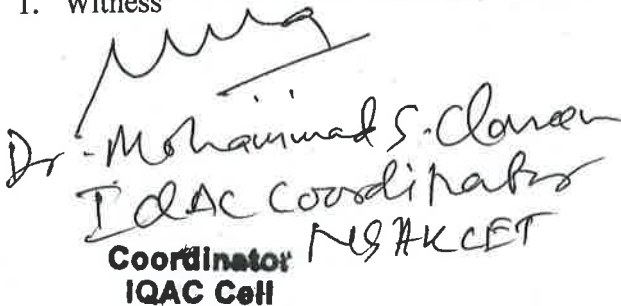 1. Witness
Dr. Mohammad S.
IQAC Coordinator
NSAKCET
Coordinator
IQAC Cell